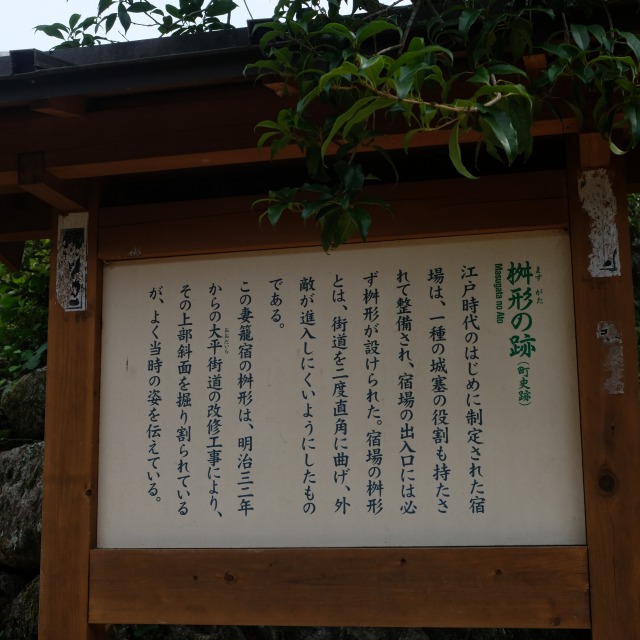 桝形の跡(町史跡)
ます がた
Masugata no Ato
江戸時代のはじめに制定された宿
場は、一種の城塞の役割も持たさ
れて整備され、宿場の出入口には必
ず桝形が設けられた。宿場の桝形
とは、街道を二度直角に曲げ、外
敵が進入しにくいようにしたもの
である。
この妻籠宿の桝形は、明治三一年
からの大平街道の改修工事により、
おおだいら
その上部斜面を掘り割られている
が、よく当時の姿を伝えている。